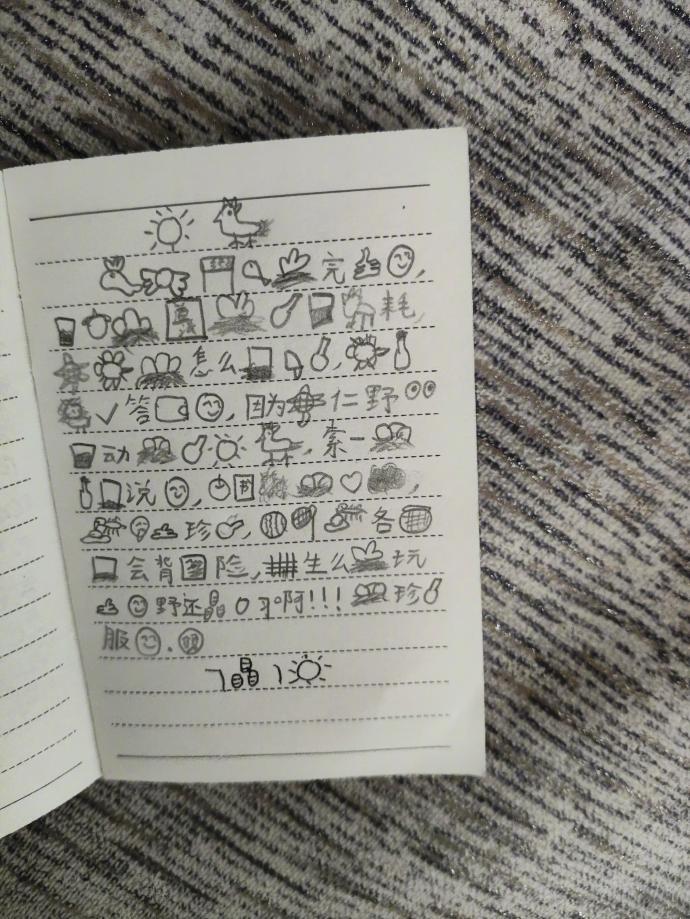 完
耗,
怎么
答,因为仁野
动,索一
说,
珍,各
会背险,生么玩
野还晶习啊!!!珍
服.
晶